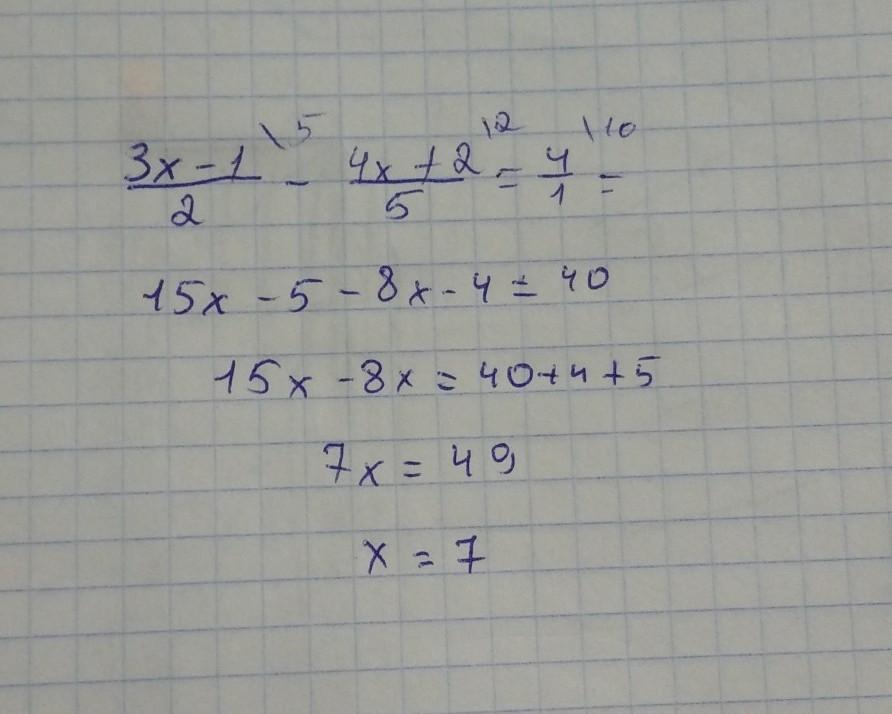 \frac{3x-1}{2}^{\5} - \frac{4x+2}{5}^{\2} = \frac{4}{1}^{\10} =
15x - 5 - 8x - 4 = 40
15x - 8x = 40+4+5
7x = 49
x = 7